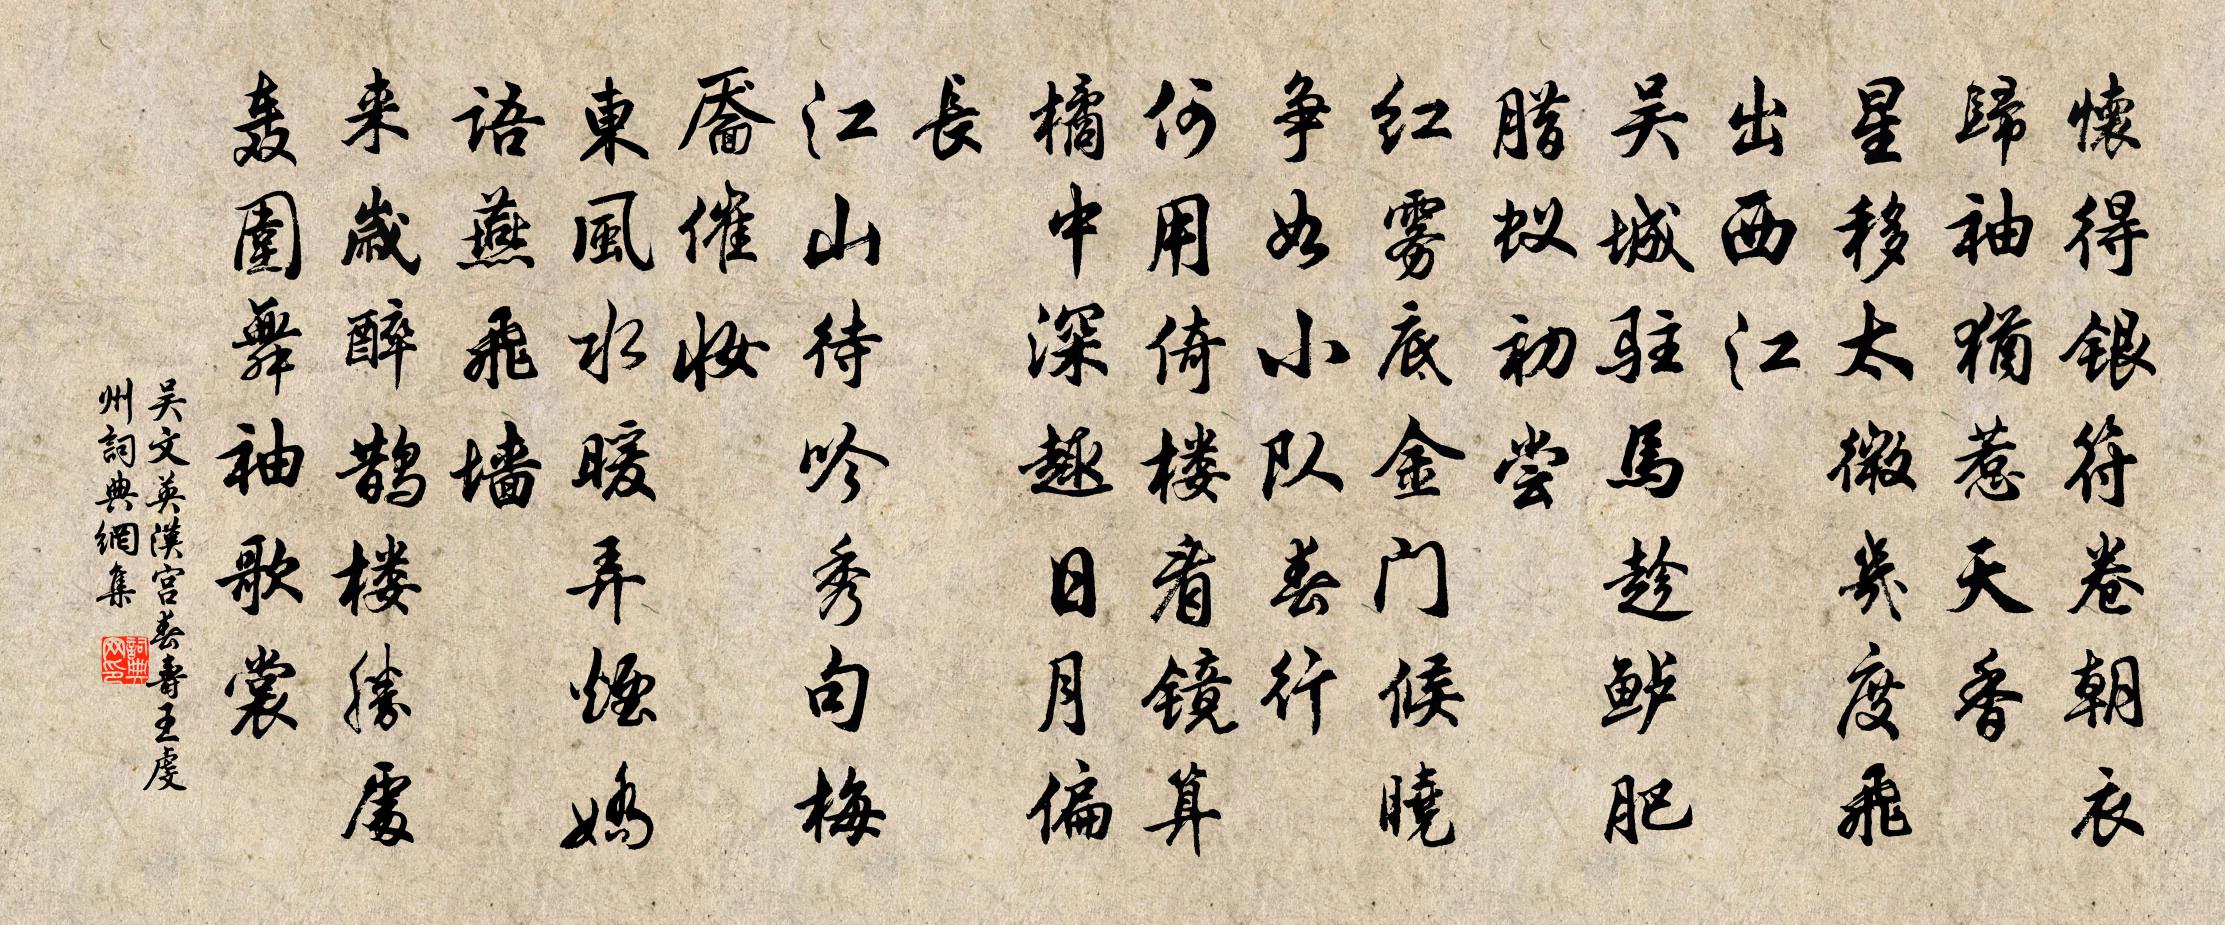 懐得銀符卷朝衣
歸袖猶惹天香
星移太微幾度飛
出西江
吴城駐馬趁鲈肥
腊蚁初尝
红雾底金门候曉
争如小队春行
何用倚楼看镜算
橘中深趣日月偏
長
江山待吟秀句梅
靥催妆
東風水暖弄煙嬌
語燕飛墙
来歲醉鹊楼勝處
轰圍舞袖歌裳
吴文英漢宫春壽王虔
州詞典網集
詞典网印